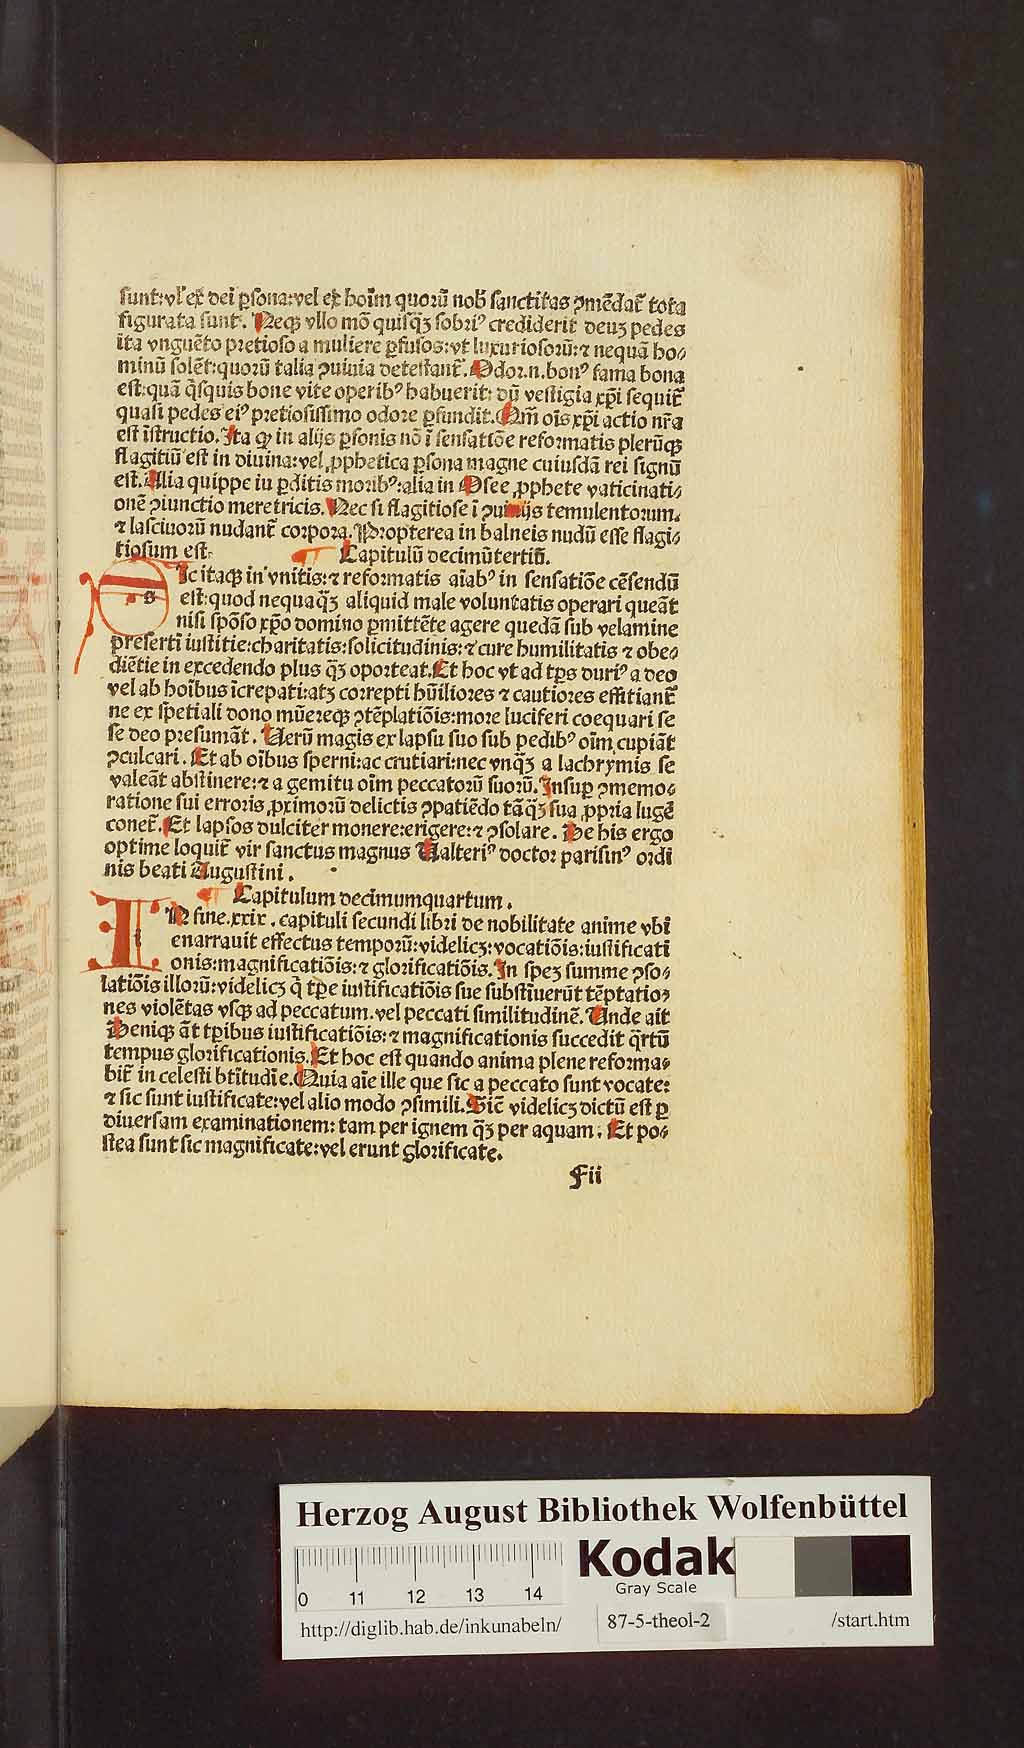 sunt:vl' ex dei ꝑsona:vel ex hoīm quorū nob̄ sanctitas ꝯmēdat᷑ tota
figurata sunt. Neqꝫ vllo mō quisqꝫ sobriꝰ crediderit deuꝫ pedes
ita vnguēto pretioso a muliere ꝑfusos:vt luxuriosorū:⁊ nequā ho⸗
minū solēt:quorū talia ꝯuiuia detestant᷑. Odor.n.bonꝰ fama bona
est:quā q̄squis bone vite operibꝰ habuerit: dū vestigia xp̄i sequit᷑
quasi pedes eiꝰ pretiosissimo odore ꝑfundit. Qm̄ oīs xp̄i actio nr̄a
est īstructio. Ita qꝫ in alijs ꝑsonis nō ī sensatiōe reformatis plerūqꝫ
flagitiū est in diuina:vel ꝓphetica ꝑsona magne cuiusdā rei signū
est. Alia quippe iu ꝑditis moribꝰ:alia in Osee ꝓphete vaticinati⸗
onē ꝯiunctio meretricis. Nec si flagitiose ī ꝯuiuijs temulentorum.
⁊ lasciuorū nudant᷑ corpora. Propterea in balneis nudū esse flagi⸗
tiosum est. Capitulū decimūtertiū.
S Ic itaqꝫ in vnitis:⁊ reformatis aīabꝰ in sensatiōe cēsendū
est:quod nequaqꝫ aliquid male voluntatis operari queāt
nisi spōso xp̄o domino ꝑmittēte agere quedā sub velamine
preserti iustitie:charitatis:solicitudinis:⁊ cure humilitatis ⁊ obe⸗
diētie in excedendo plus qꝫ oporteat. Et hoc vt ad tp̄s duriꝰ a deo
vel ab hoībus īcrepati:atꝫ correpti hūiliores ⁊ cautiores effitiant᷑
ne ex spetiali dono mūereqꝫ ꝯtēplatiōis:more luciferi coequari se
se deo presumāt. Uerū magis ex lapsu suo sub pedibꝰ oīm cupiāt
ꝯculcari. Et ab oībus sperni:ac crutiari:nec vnqꝫ a lachrymis se
valeāt abstinere:⁊ a gemitu oīm peccatorū suorū. Insuꝑ ꝯmemo⸗
ratione sui erroris ꝓximorū delictis ꝯpatiēdo tāqꝫ sua ꝓpria lugē
conet᷑. Et lapsos dulciter monere:erigere:⁊ ꝯsolare. De his ergo
optime loquit᷑ vir sanctus magnus Ualteriꝰ doctor parisinꝰ ordi
nis beati Augustini.
Capitulum decimumquartum.
I N fine.xxix.capituli secundi libri de nobilitate anime vbi
enarrauit effectus temporū:videlicꝫ:vocatiōis:iustificati
onis:magnificatiōis:⁊ glorificatiōis. In speꝫ summe ꝯso⸗
latiōis illorū:videlicꝫ q̄ tꝑe iustificatiōis sue substiuerūt tēptatio⸗
nes violētas vsqꝫ ad peccatum.vel peccati similitudinē. Unde ait
Deniqꝫ āt tꝑibus iustificatiōis:⁊ magnificationis succedit q̄rtū
tempus glorificationis. Et hoc est quando anima plene reforma⸗
bit᷑ in celesti btītudīe. Quia aīe ille que sic a peccato sunt vocate:
⁊ sic sunt iustificate:vel alio modo ꝯsimili. Sic̄ videlicꝫ dictū est ꝑ
diuersam examinationem: tam per ignem qꝫ per aquam. Et po⸗
stea sunt sic magnificate:vel erunt glorificate.
Fii
Herzog August Bibliothek Wolfenbüttel
Kodak
Gray Scale
0 11 12 13 14
http://diglib.hab.de/inkunabeln/ 87-5-theol-2 /start.htm